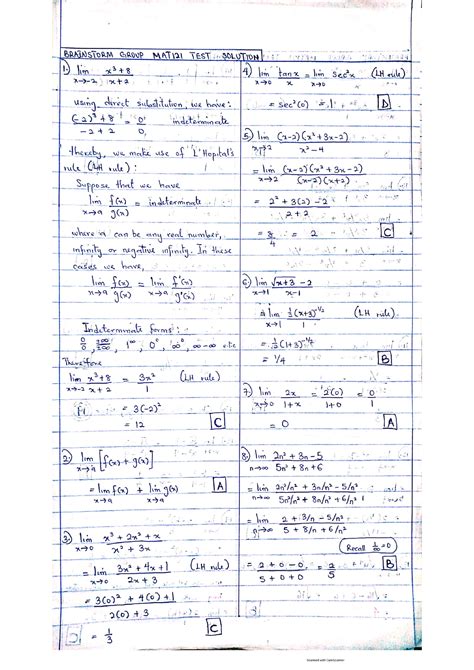 BRAINSTORM GROUP MAT121 TEST SOLUTION
1.) lim x→-2 x³+8 / x+2
using direct substitution, we have:
(-2)³+8 / -2+2 = 0/0, indeterminate
thereby, we make use of L'Hopital's
rule (LH rule):
Suppose that we have
lim x→a f(x)/g(x) = indeterminate
where a can be any real number,
infinity or negative infinity. In these
cases we have,
lim x→a f(x)/g(x) = lim x→a f'(x)/g'(x)
Indeterminate forms:
0/0, ∞/∞, 1^∞, 0⁰, ∞⁰, ∞-∞ etc
Therefore
lim x→-2 x³+8 / x+2 = 3x²/1 (LH rule)
= 3(-2)²
= 12 C
2) lim x→a [f(x)+g(x)]
= lim x→a f(x) + lim x→a g(x) A
3) lim x→0 x³+2x²+x / x²+3x
= lim x→0 3x²+4x+1 / 2x+3 (LH rule)
= 3(0)²+4(0)+1 / 2(0)+3
= 1/3 C
4) lim x→0 tan x / x = lim x→0 sec²x (LH rule)
= sec²(0) = 1 D
5) lim x→2 (x-2)(x²+3x-2) / x²-4
= lim x→2 (x-2)(x²+3x-2) / (x-2)(x+2)
= 2²+3(2)-2 / 2+2
= 8/4 = 2 C
6) lim x→1 √x+3 - 2 / x-1
lim x→1 ½(x+3)^-½ / 1 (LH rule)
= ½(1+3)^-½
= 1/4 B
7) lim x→0 2x / 1+x = 2(0) / 1+0 = 0/1
= 0 A
8) lim n→∞ 2n²+3n-5 / 5n²+8n+6
= lim n→∞ 2n²/n²+3n/n²-5/n² / 5n²/n²+8n/n²+6/n²
= lim n→∞ 2+3/n-5/n² / 5+8/n+6/n²
(Recall 1/∞=0)
= 2+0-0 / 5+0+0 = 2/5 B
Scanned with CamScanner